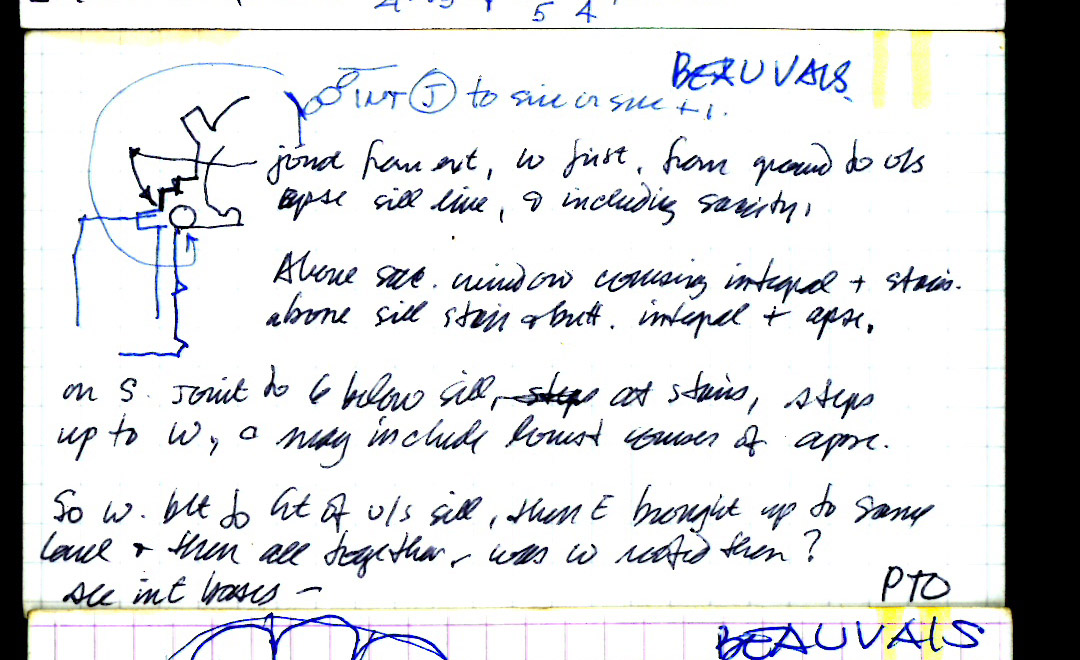 5 4
BEAUVAIS
INT J to sill or sill +1.
joint from ext, W first, from ground to u/s
apse sill line, & including sacristy,
Above sac. window coursing integral + stairs.
above sill stair & butt. integral + apse.
on S. Joint to 6 below sill, steps at stairs, steps
up to W, & may include lowest courses of apse.
So W. blt to ht of u/s sill, then E brought up to same
level & then all together, was W roofed then?
see int bases -
PTO
BEAUVAIS